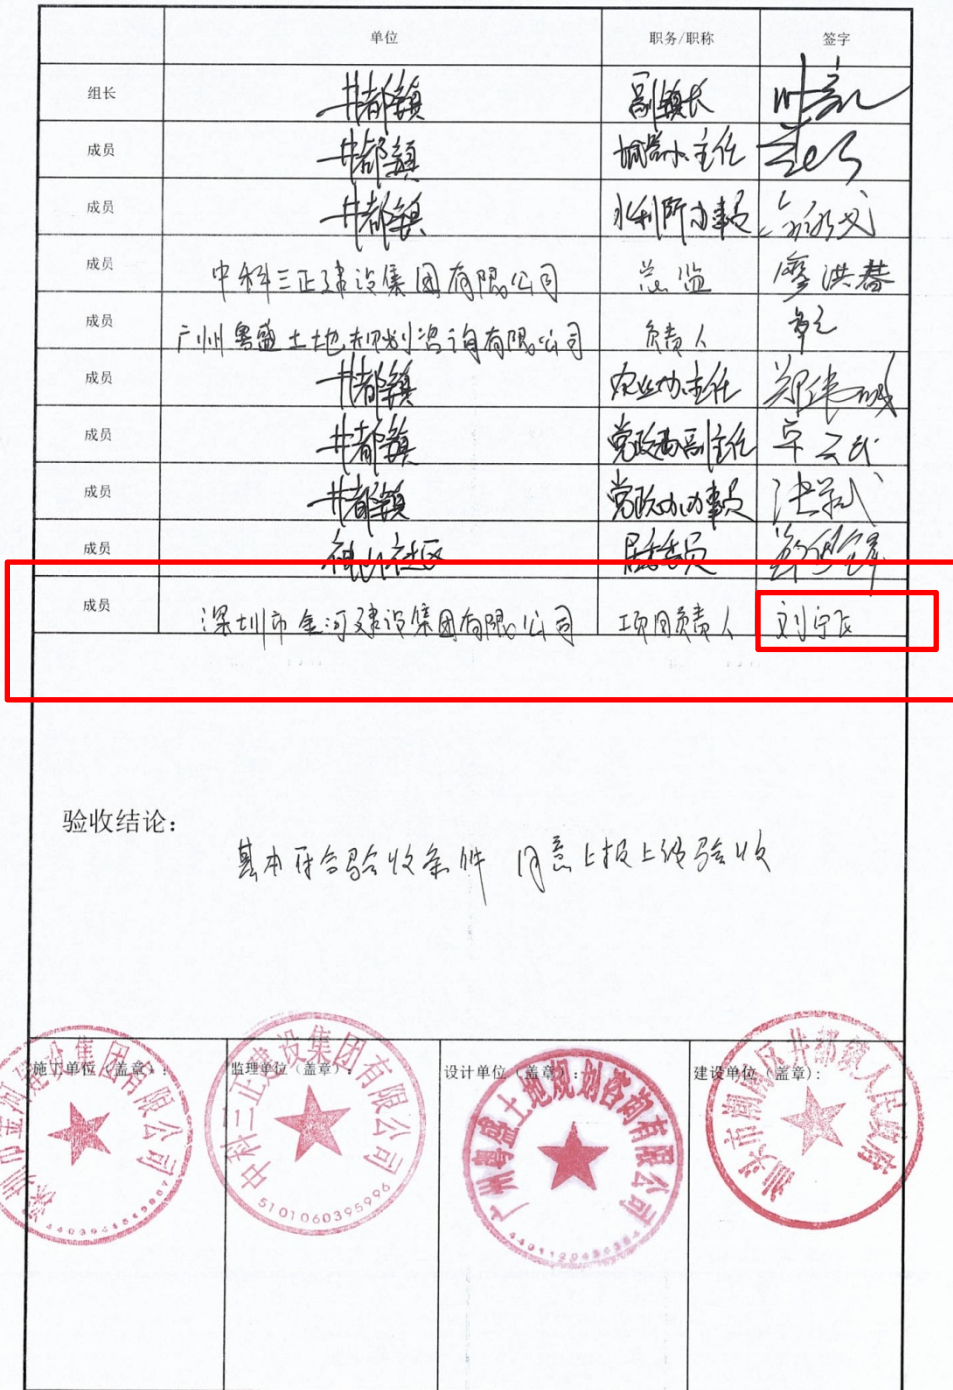 单位 职务/职称 签字
组长 井都镇 副镇长
成员 井都镇 城管办主任
成员 井都镇 水利所办事员
成员 中科三正建设集团有限公司 总监 廖洪春
成员 广州粤盛土地规划咨询有限公司 负责人 章立
成员 井都镇 农业办主任 郑伟城
成员 井都镇 党政办副主任 卓云武
成员 井都镇 党政办办事员
成员 神山社区 居委委员
成员 深圳市金河建设集团有限公司 项目负责人 刘宁飞
验收结论：
基本符合验收条件 同意上报上级验收
施工单位（盖章）： 监理单位（盖章）： 设计单位（盖章）： 建设单位（盖章）：
深圳市金河建设集团有限公司
中科三正建设集团有限公司
5101060395996
广州粤盛土地规划咨询有限公司
汕头市潮南区井都镇人民政府